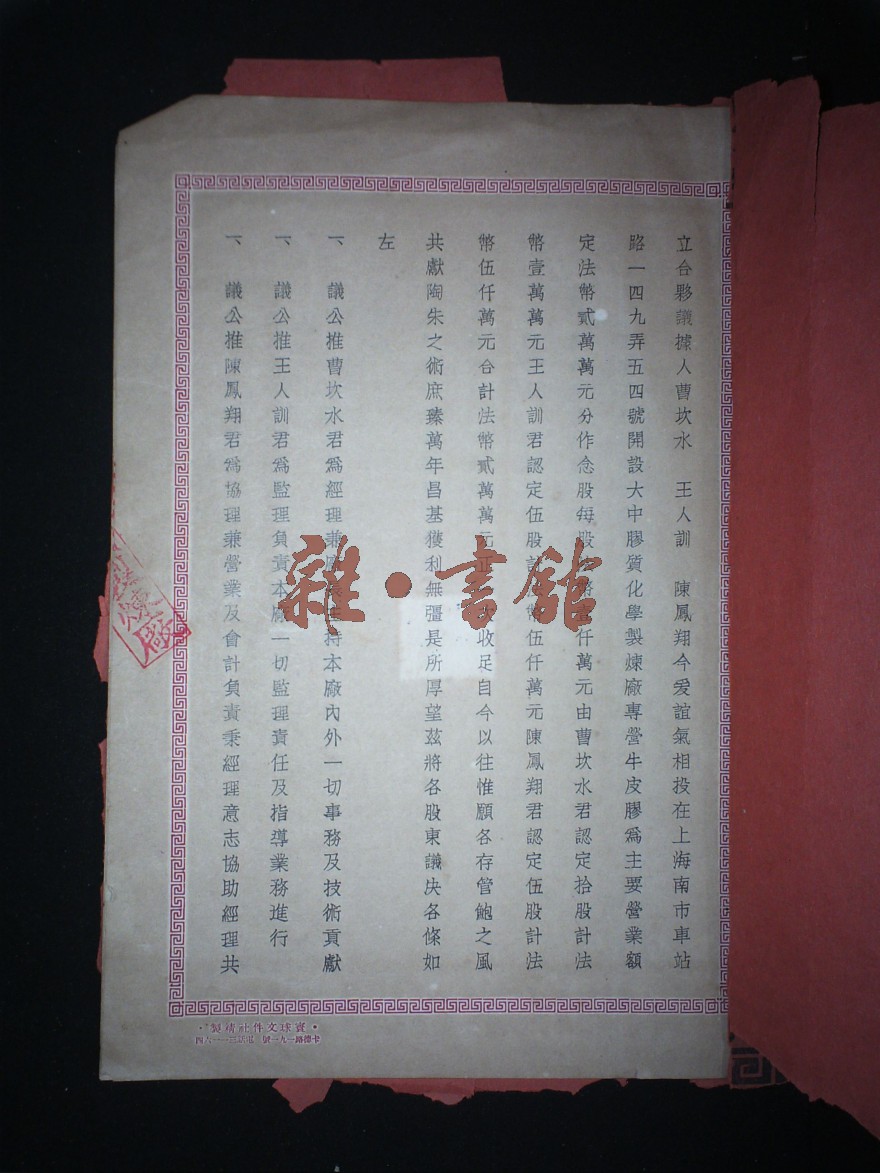 立合夥議據人曹坎水　王人訓　陳鳳翔今爰誼氣相投在上海南市車站
路一四九弄五四號開設大中膠質化學製煉廠專營牛皮膠爲主要營業額
定法幣貳萬萬元分作念股每股 幣 仟萬元由曹坎水君認定拾股計法
幣壹萬萬元王人訓君認定伍股計 幣伍仟萬元陳鳳翔君認定伍股計法
幣伍仟萬元合計法幣貳萬萬元正 收足自今以往惟願各存管鮑之風
共獻陶朱之術庶臻萬年昌基獲利無彊是所厚望茲將各股東議決各條如
左
一、議公推曹坎水君爲經理兼廠 持本廠內外一切事務及技術貢獻
一、議公推王人訓君爲監理負責本廠一切監理責任及指導業務進行
一、議公推陳鳳翔君爲協理兼營業及會計負責秉經理意志協助經理共
雜·書館
·寶球文件社精製·
卡德路一九一號